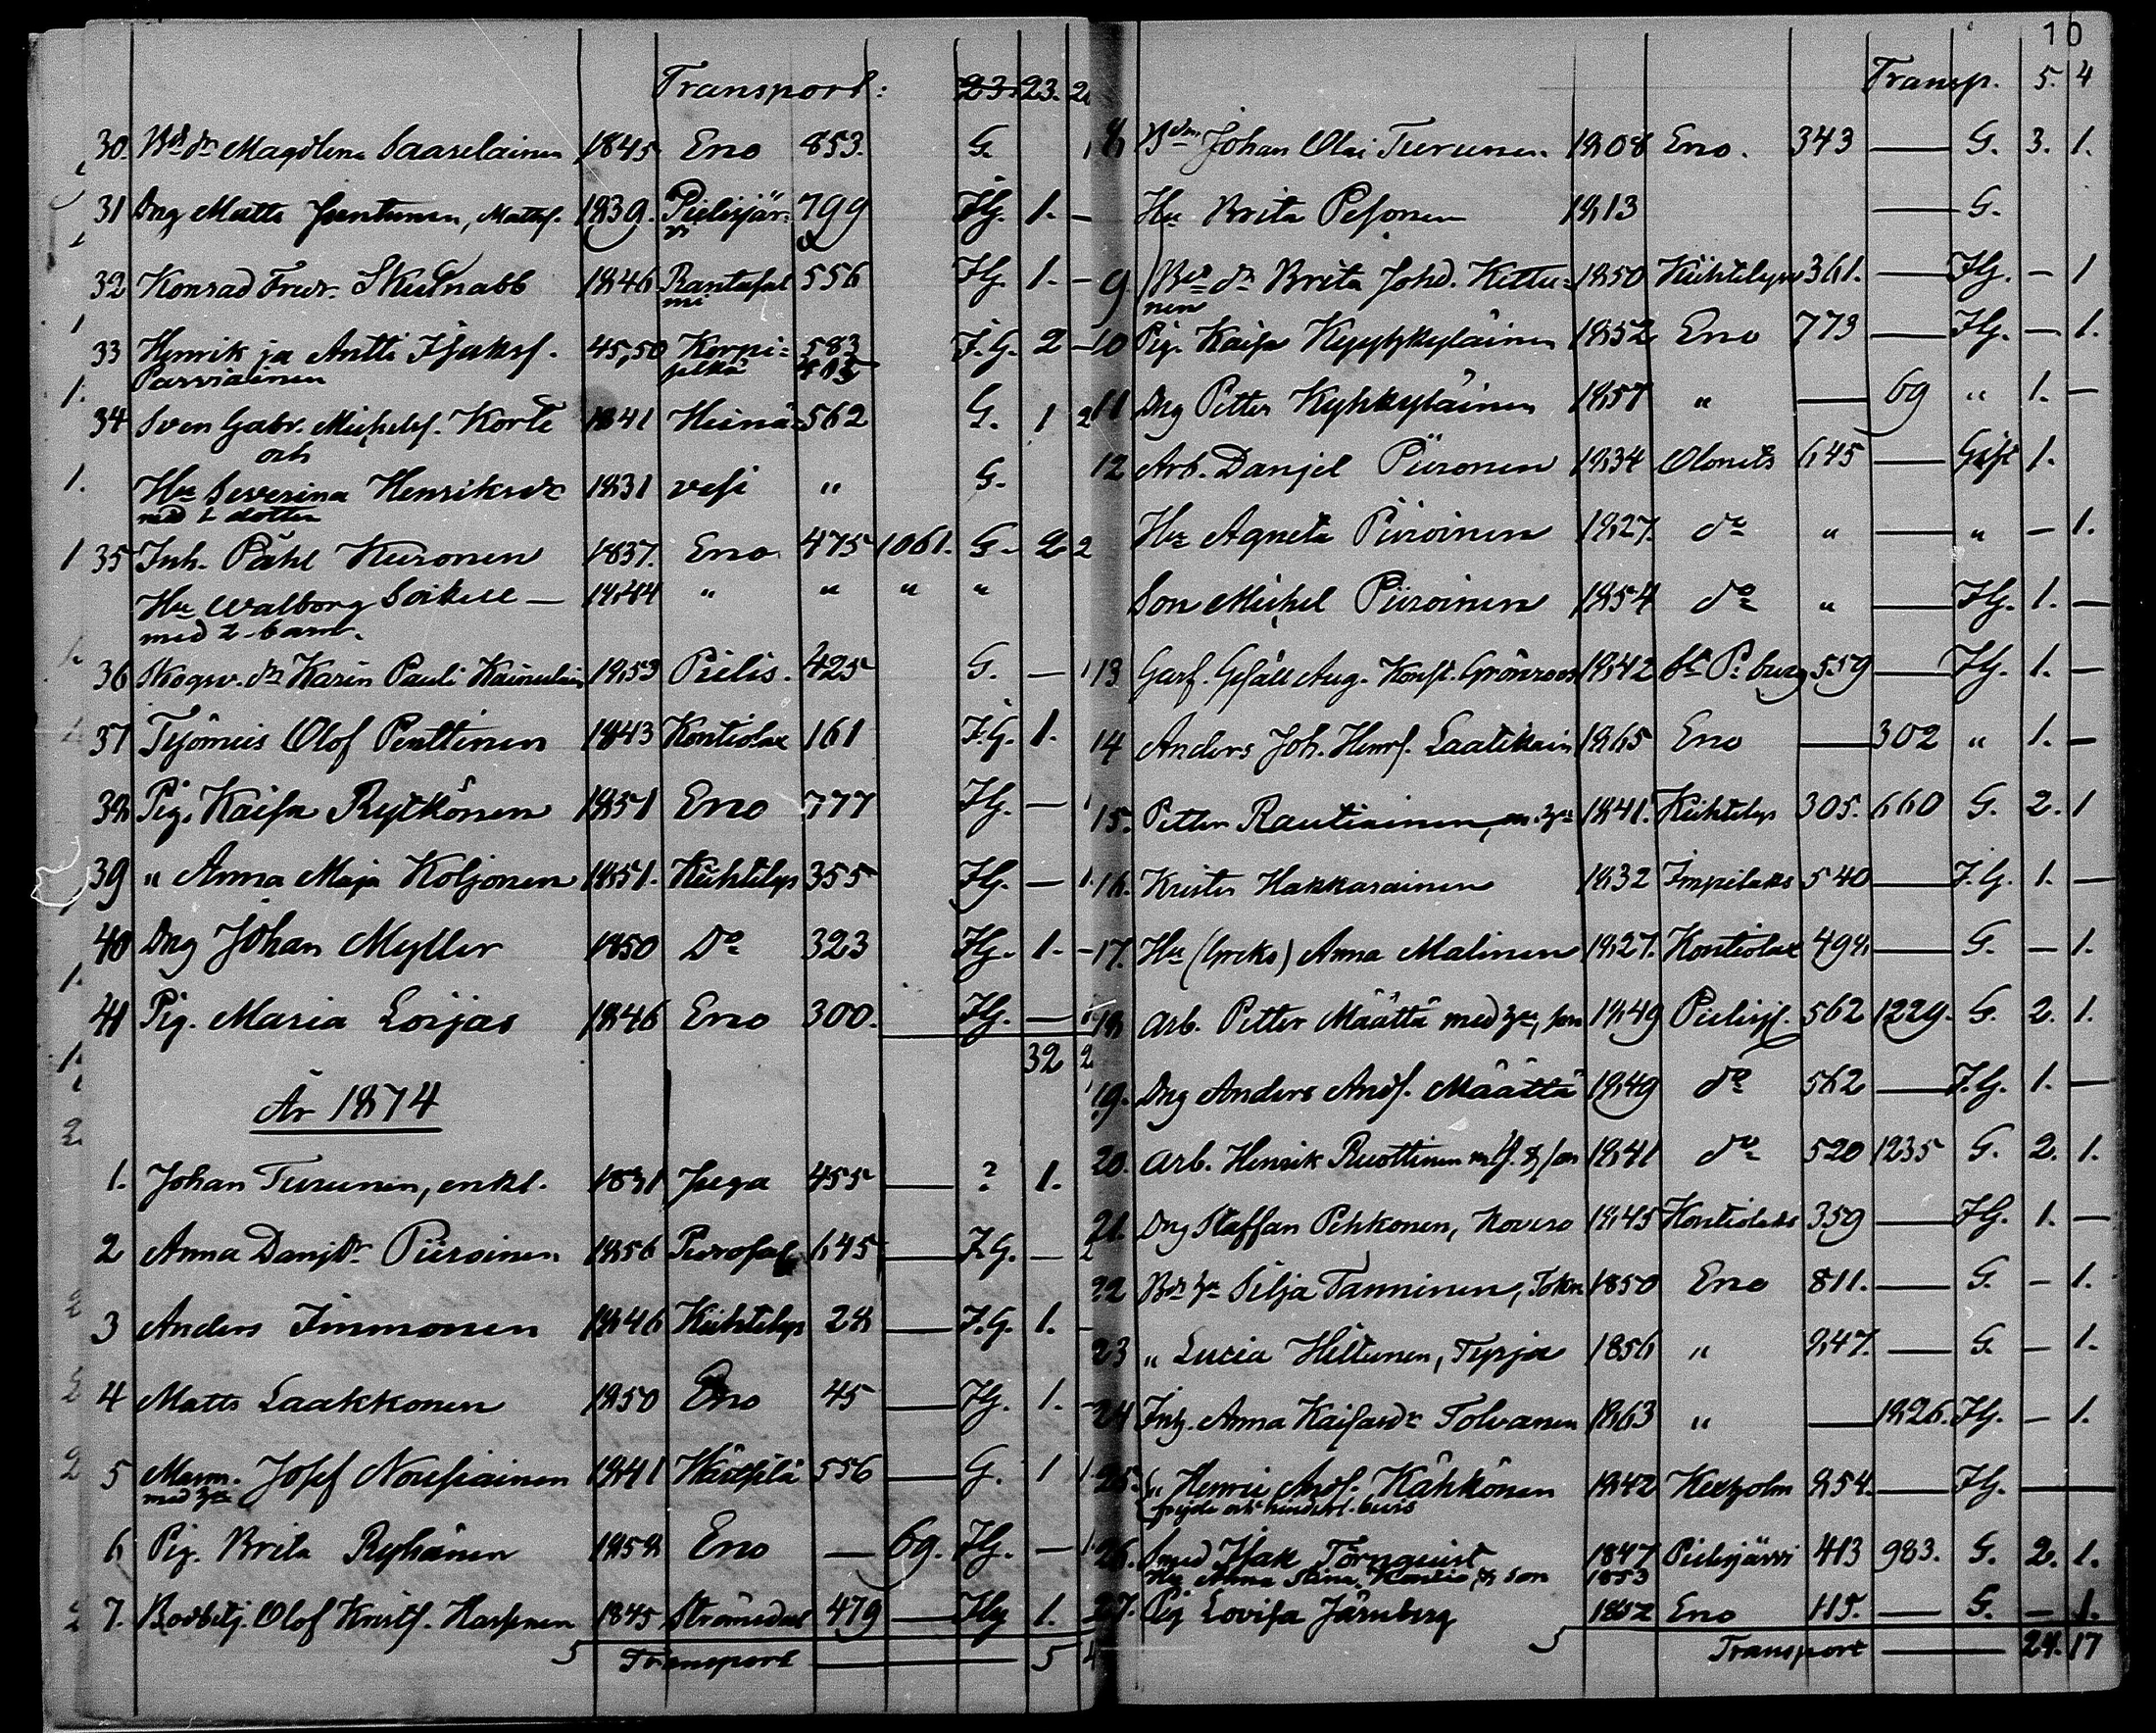 Transport: 23. 23. 2
30. Bd dr Magdlena Saarelainen 1845 Eno 853. G.
31 Dng Matts Juntunen, Mattss. 1839. Pielisjär= 799 IG. 1. —
vi
32 Konrad Fredr. Skutnabb 1846 Rantasal 556 IG. 1. —
mi
33 Henrik ja Antti Isakss. 45,50 Korpi= 583 I.G. 2 —
Parviainen selkä
34 Sven Gabr. Michelss. Korte 1841 Heinä= 562 G. 1 2
och
Hu Severina Henriksdr 1831 vesi " G.
med 1 dotter
35 Inh. Påhl Kuronen 1837. Eno 475 1061. G. 2 2
Hu Walborg Soikel — 1844 " " " "
med 2 barn.
36 Skogsv. dr Karin Pauli Kainulain 1853 Pielis. 425 G. — 1
37 Olof Penttinen 1843 Kontiolax 161 I.G. 1.
38 Pig. Kaisa Rytkönen 1851 Eno 777 IG. — 1
39 " Anna Maja Koljonen 1851. Kiihtelys 355 IG. — 1.
40 Dng Johan Myller 1850 Do 323 IG. 1. —
41 Pig. Maria Loijas 1846 Eno 300. IG. —
32 2
År 1874
1. Johan Turunen, enkl. 1831 Juga 455 — ? 1.
2 Anna Danjdr Piiroinen 1856 645 — I.G. — 2
3 Anders Immonen 1846 Kiihtelys 28 — I.G. 1. —
4 Matts Laakkonen 1850 Eno 45 — IG. 1. —
5 Josef Nousiainen 1841 556 — G. 1 1
med hu
6 Pig. Brita Ryhänen 1858 Eno — 69. IG. — 1
7. Olof Krists. Harsinen 1845 Strömsdal 479 — IG 1.
Transport — 5 4
10
Transp. 5. 4
8 Bdm Johan Olai Turunen 1808 Eno. 343 — G. 3. 1.
Hu Brita Pesonen 1813 — G.
9 Bd dr Brita Johd. Kettu= 1850 Kiihtelys 361. — IG. — 1
nen
10 Pig. Kaisa Kyyhkyläinen 1852 Eno 773 — IG. — 1.
11 Dng Petter Kyhkyläinen 1857 " — 69 " 1. —
12 Arb. Danjel Piironen 1834 Olonets 645 — Gift 1.
Hu Agneta Piiroinen 1827. do " — " — 1.
Son Michel Piiroinen 1854 do " — IG. 1. —
13 Garf. Gesäll Aug. Konst. Grönroos 1842 St P:burg 559 — IG. 1. —
14 Anders Joh. Henrs. Laatikain 1865 Eno — 302 " 1. —
15. Petter Rautiainen, m. hu 1841. Kiihtelys 305. 660 G. 2. 1
16. Krister Hakkarainen 1832 Impilaks 540 — I.G. 1. —
17. Hu (Greks) Anna Malinen 1827. Kontiolax 498. — G. — 1.
18 Arb. Petter Määttä med hu, son 1849 Pielisj. 562 1229. G. 2. 1.
19. Dng Anders Ands. Määttä 1849 do 562 — I.G. 1. —
20. Arb. Henrik Ruottinen & son 1841 do 520 1235 G. 2. 1.
21. Dng Staffan Pehkonen, Kovero 1845 Kontiolaks 359 — IG. 1. —
22 Silja Tanninen, 1850 Eno 811. — G. — 1.
23 " Lucia Hiltunen, Tyrja 1856 " 847. — G. — 1.
24 Inh. Anna Kaisasdr Tolvanen 1863 " — 1826. IG. — 1.
25. " Henric Ands. Kähkönen 1842 Kexholm 854. — IG. —
frejde och hinderl. bevis
26. Smed Isak Törnquist 1847 Pielisjärvi 413 983. G. 2. 1.
Hu Anna Stina & son 1853
27. Pig Lovisa Järnberg 1852 Eno 115. — G. — 1.
Transport — 24. 17